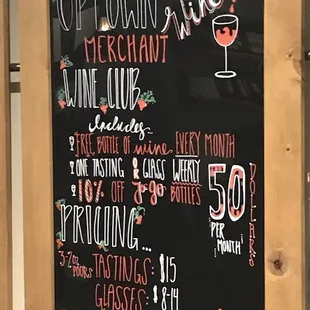 UPTOWN
wine
MERCHANT
WINE CLUB
Includes
FREE BOTTLE OF wine EVERY MONTH
ONE TASTING & GLASS WEEKLY
10% OFF To-go BOTTLES
50 DOLLARS
PER
MONTH
PRICING...
3-2oz POURS TASTINGS: $15
GLASSES: $8-14